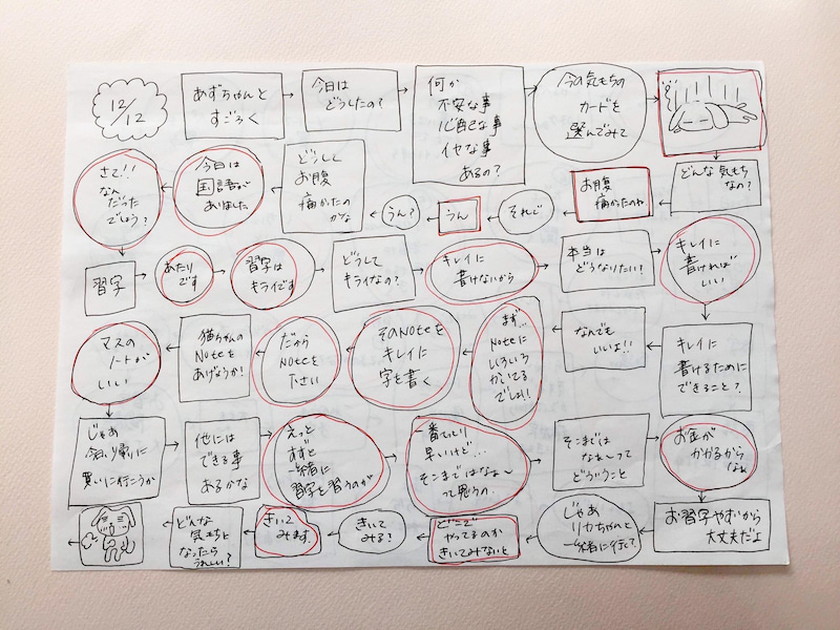 12/12
あずちゃんと
すごろく
今日は
どうしたの?
何か
不安な事
心配な事
イヤな事
あるの?
今の気もちの
カードを
選んでみて
どんな気もち
なの?
お腹
痛かったのや
それで
うん
うん?
どうして
お腹
痛かったの
かな
今日は
国語が
ありました
さて!!
なん
だった
でしょう?
習字
あたり
です
習字は
キライです
どうして
キライなの?
キレイに
書けないから
本当は
どうなりたい?
キレイに
書ければ
いい
キレイに
書けるために
できること?
なんでも
いいよ!!
まず…
Noteに
いろいろ
かいてる
でしょ!!
そのNoteを
キレイに
字を書く
だから
Noteを
下さい
猫ちゃんの
Noteを
あげようか!
マスの
ノートが
いい
じゃあ
今日、帰りに
買いに行こうか
他には
できる事
あるかな
えっと
すずと
一緒に
習字を習うのが
一番
早いけど…
そこまではなぁ〜
って思うの
そこまでは
なぁ〜って
どういうこと
お金が
かかるから
なぁ
お習字やすいから
大丈夫だよ
じゃあ
リカちゃんと
一緒に行って
どこで
やってるのか
きいてみないと
きいて
みる?
きいて
みます
どんな
気もちに
なったら
うれしい?